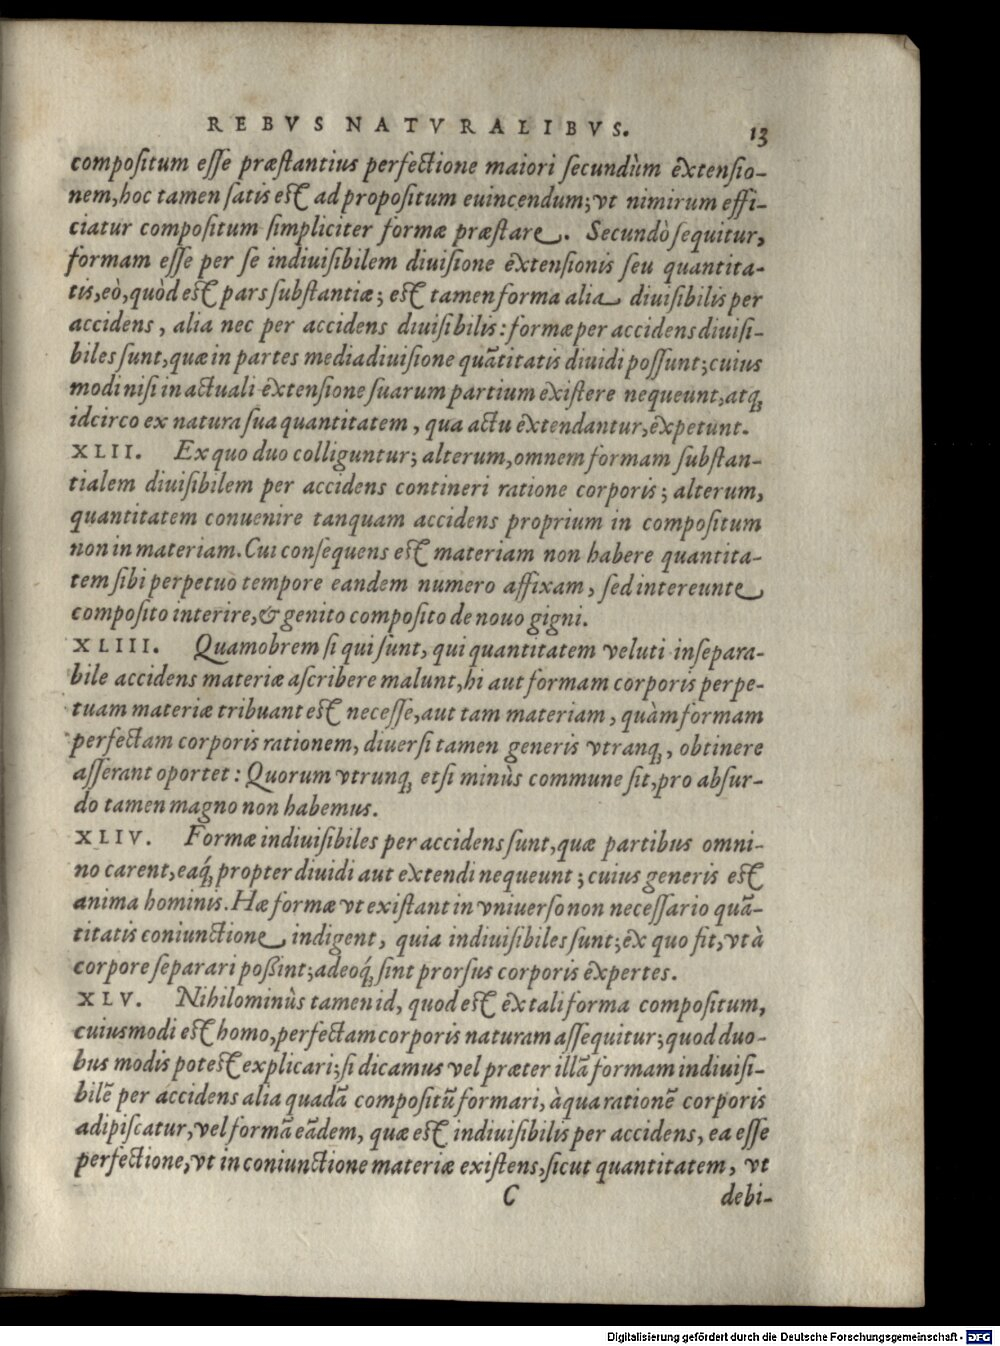 REBVS NATVRALIBVS. 13
compoſitum eſſe præſtantius perfectione maiori ſecundùm extenſio-
nem, hoc tamen ſatis est ad propoſitum euincendum; vt nimirum effi-
ciatur compoſitum ſimpliciter formæ præſtare. Secundò ſequitur,
formam eſſe per ſe indiuiſibilem diuiſione extenſionis ſeu quantita-
tis, eò, quòd est pars ſubſtantiæ; est tamen forma alia diuiſibilis per
accidens, alia nec per accidens diuiſibilis: formæ per accidens diuiſi-
biles ſunt, quæ in partes media diuiſione quãtitatis diuidi poſſunt; cuius
modi niſi in actuali extenſione ſuarum partium exiſtere nequeunt, atq́;
idcirco ex natura ſua quantitatem, qua actu extendantur, expetunt.
XLII. Ex quo duo colliguntur; alterum, omnem formam ſubſtan-
tialem diuiſibilem per accidens contineri ratione corporis; alterum,
quantitatem conuenire tanquam accidens proprium in compoſitum
non in materiam. Cui conſequens est materiam non habere quantita-
tem ſibi perpetuo tempore eandem numero affixam, ſed intereunte
compoſito interire, & genito compoſito de nouo gigni.
XLIII. Quamobrem ſi qui ſunt, qui quantitatem veluti inſepara-
bile accidens materiæ aſcribere malunt, hi aut formam corporis perpe-
tuam materiæ tribuant est neceſſe, aut tam materiam, quàm formam
perfectam corporis rationem, diuerſi tamen generis vtranq;, obtinere
aſſerant oportet: Quorum vtrunq; etſi minùs commune ſit, pro abſur-
do tamen magno non habemus.
XLIV. Formæ indiuiſibiles per accidens ſunt, quæ partibus omni-
no carent, eaq́; propter diuidi aut extendi nequeunt; cuius generis est
anima hominis. Hæ formæ vt exiſtant in vniuerſo non neceſſario quã-
titatis coniunctione indigent, quia indiuiſibiles ſunt; ex quo fit, vt à
corpore ſeparari poßint; adeoq́; ſint prorſus corporis expertes.
XLV. Nihilominùs tamen id, quod est ex tali forma compoſitum,
cuiusmodi est homo, perfectam corporis naturam aſſequitur; quod duo-
bus modis potest explicari; ſi dicamus vel præter illã formam indiuiſi-
bilẽ per accidens alia quadã compoſitũ formari, à qua rationẽ corporis
adipiſcatur, vel formã eãdem, quæ est indiuiſibilis per accidens, ea eſſe
perfectione, vt in coniunctione materiæ exiſtens, ſicut quantitatem, vt
C debi-
Digitalisierung gefördert durch die Deutsche Forschungsgemeinschaft - DFG